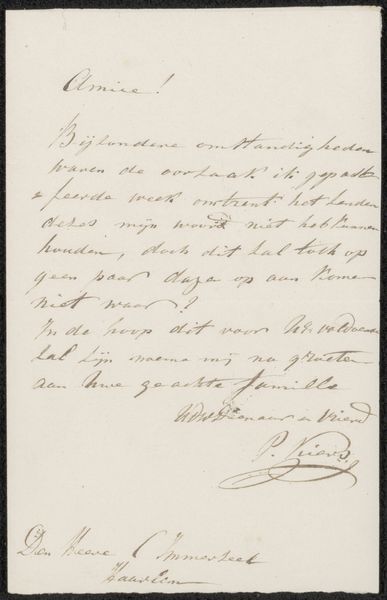 Amice!
Bijzondere omstandigheden
waren de oorzaak ik gepass
feerde week omtrent het zenden
dezes mijn woord niet heb kunnen
houden, doch dit zal toch op
geen paar dage op aan komen
niet waar?
In de hoop dit voor UE voldoende
zal zijn noeme mij na groeten
aan Uwe geachte familie
UDw Dienaar en Vriend
P. Kiers
Den Heere C Immerzeel
Haarlem